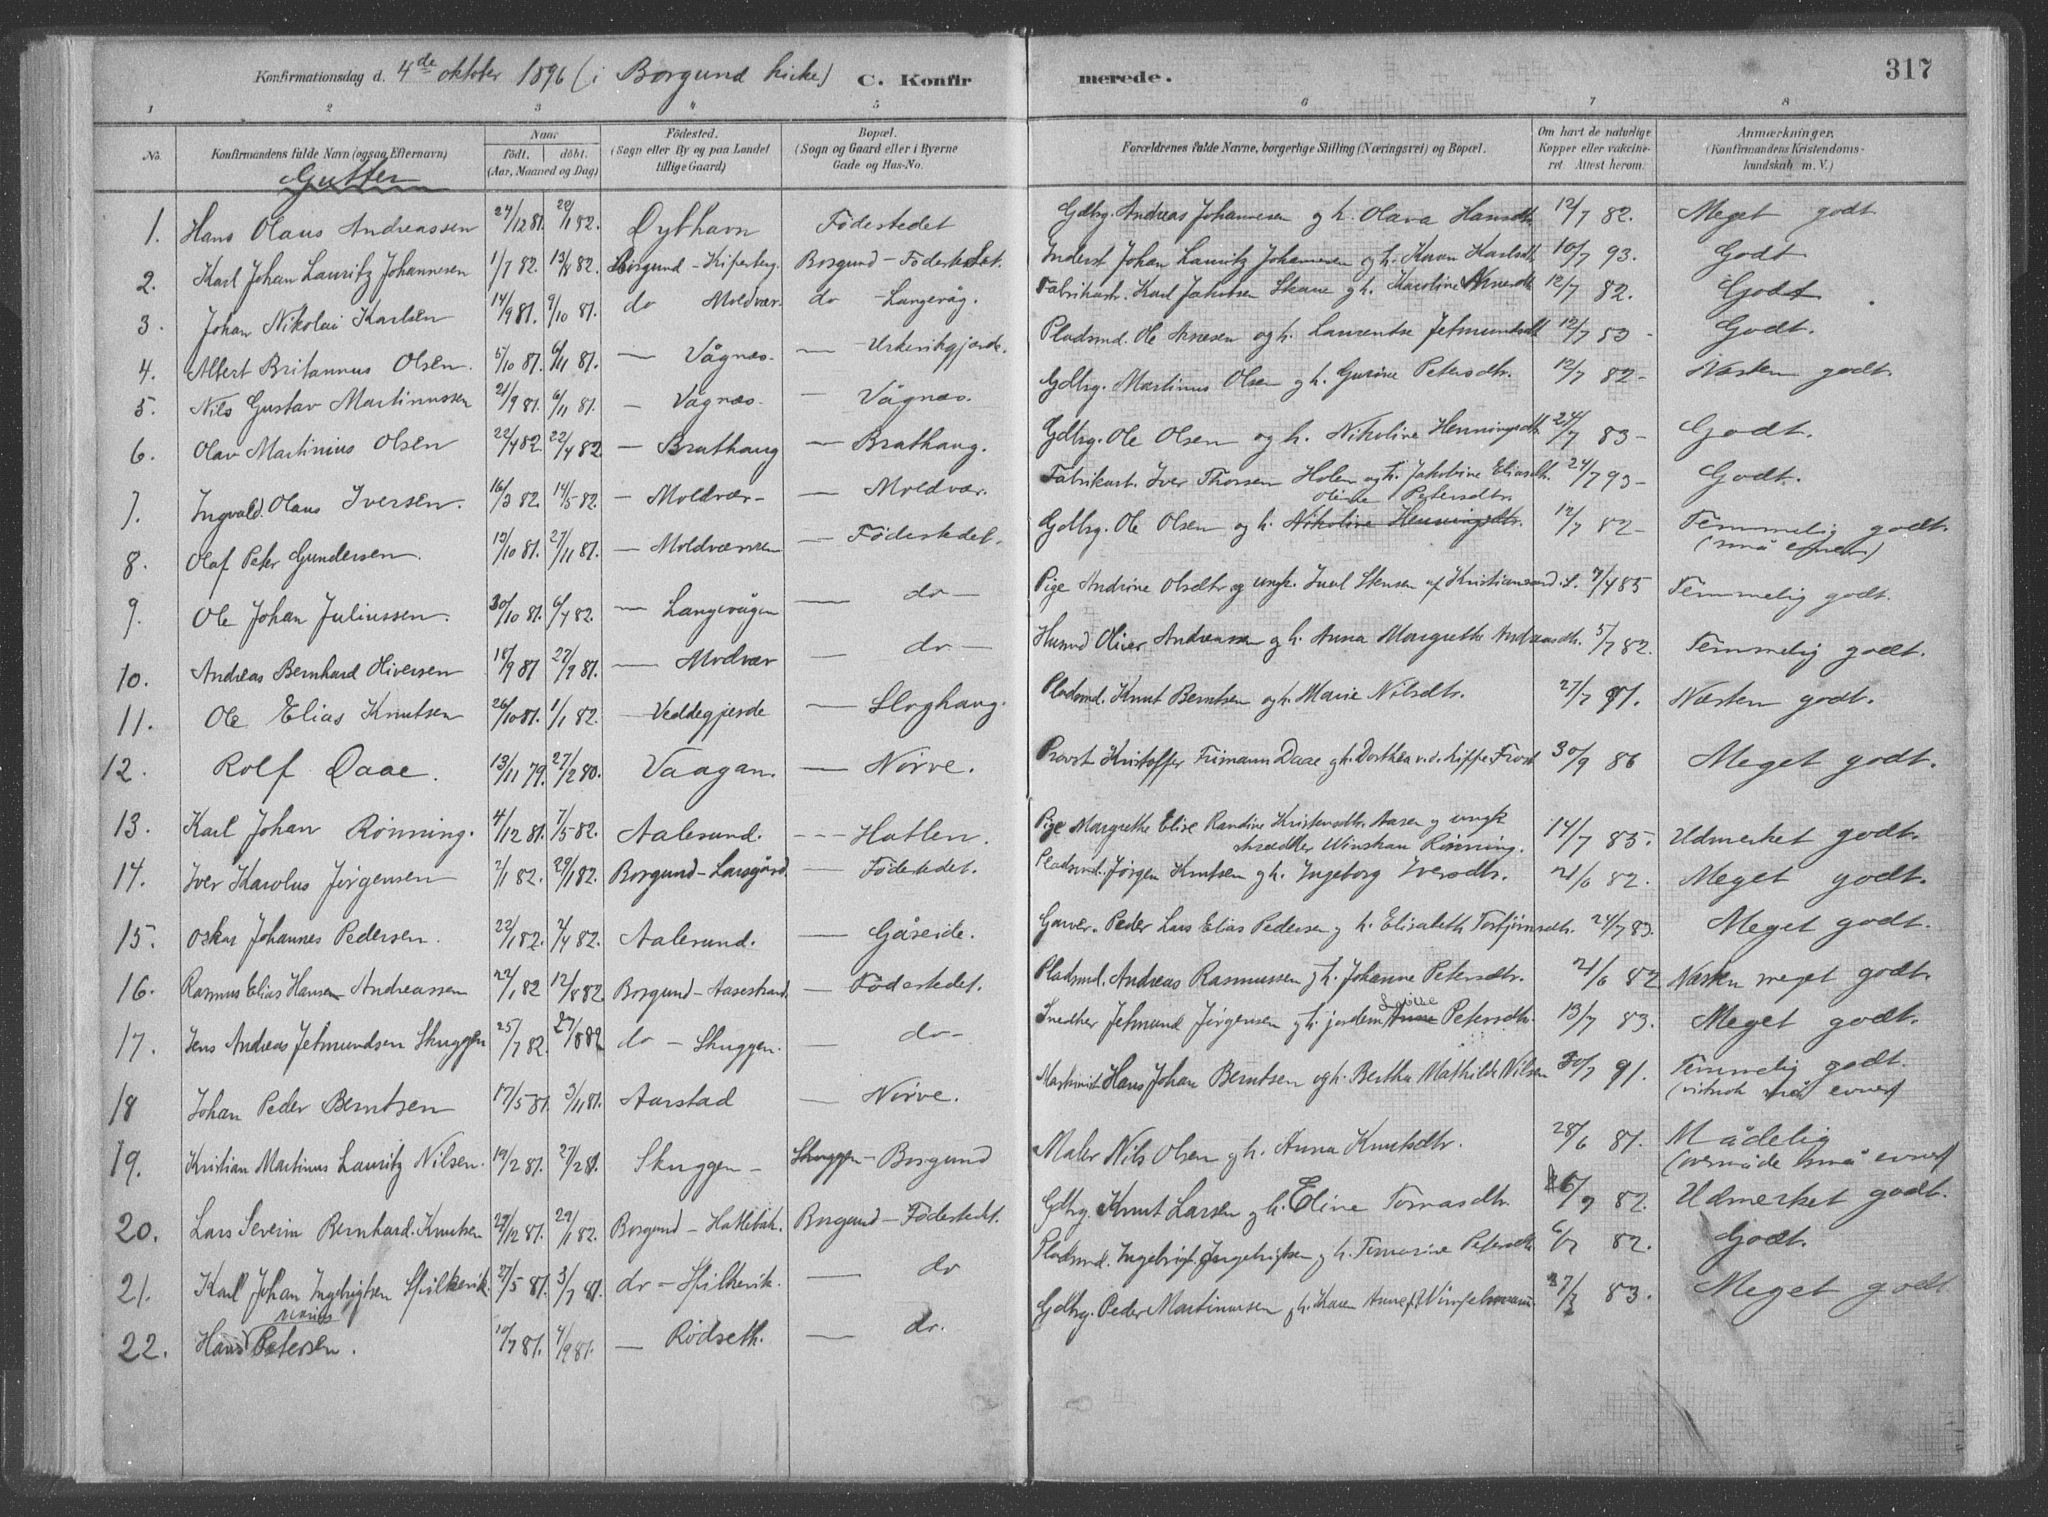 Konfirmationsdag d. 4de oktober 1896 (i Borgund kirke) C. Konfirmerede. 317
1 2 3 4 5 6 7 8
No. Konfirmandens fulde Navn (ogsaa Efternavn) Naar født. døbt. (Aar, Maaned og Dag) Födested. (Sogn eller By og paa Landet tillige Gaard) Bopæl. (Sogn og Gaard eller i Byerne Gade og Hus-No. Forældrenes fulde Navne, borgerlige Stilling (Næringsvei) og Bopæl. Om havt de naturlige Kopper eller vakcineret. Attest herom. Anmærkninger. (Konfirmandens Kristendomskundskab m. V.)
Gutter
1. Hans Olaus Andreassen 24/12 81. 20/1 82. Dybhavn Födestedet Gdbrg. Andreas Johannesen og h. Olava Hansdtr. 12/7 82. Meget godt
2. Karl Johan Lauritz Johannesen 1/7 82. 13/8 82. Borgund - Kiperberg. Borgund - Födestedet. Inderst Johan Lauritz Johannesen og h. Karen Karlsdtr. 10/7 93. Godt
3. Johan Nikolai Karlsen 14/9 81. 9/10 81. do Moldvær. do - Langevåg. Fabrikarb. Karl Jakobsen og h. Karoline 12/7 82. Godt
4. Albert Britannus Olsen. 5/10 81. 6/11 81. — Vågnæs. — Urkevikgjærde. Pladsmd. Ole Arnesen og h. Laurentse Jetmundsdtr. 12/7 83 - Godt.
5. Nils Gustav Martinussen 21/9 81. 6/11 81. — Vågnæs. — Vågnæs. Gdbrg. Martinus Olsen og h. Gurine Petersdtr. 12/7 82 - Næsten godt.
6. Olav Martinius Olsen 22/4 82. 22/4 82 — Brathaug — Brathaug. Gdbrg. Ole Olsen og h. Nikoline Henningsdtr. 24/7 83 - Godt.
7. Ingvald Olaus Iversen. 16/3 82. 14/5 82. — Moldvær - — Moldvær. Fabrikarb. Iver Thorsen Holen og h. Jakobine Eliasdtr. 24/7 93 - Godt.
8. Olaf Peter Gundersen. 13/10 81. 27/11 81. — Moldværven — Födestedet. Gdbrg. Ole Olsen og h. Nikoline Henningsdtr. Oline Petersdtr. 12/7 82 - Temmelig godt. (små evner)
9. Ole Johan Juliussen. 30/10 81. 6/4 82. — Langevågen — do - Pige Andrine Olsdtr og ungk. Juul Stensen af Kristianssund. 7/4 85 Temmelig godt.
10. Andreas Bernhard Hiversen 18/9 81 27/9 81. — Moldvær — do - Husmd Oliver Andreassen og h. Anna Margrethe Andreasdtr. 5/7 82. Temmelig godt.
11. Ole Elias Knutsen 26/10 81. 1/1 82. — Veddegjerde — Sloghaug. Pladsmd. Knut Berntsen og h. Marie Nilsdtr. 27/7 91. Næsten godt.
12. Rolf Daae. 13/11 79. 27/2 80. Vaagan. — Nörve. Provst Kristoffer Frimann Daae og h. Dorthea v.d. Lippe Frost 30/9 86 Meget godt.
13. Karl Johan Rönning. 4/12 81. 7/5 82. Aalesund. --- Hatlen. Pige Margrethe Elise Randine Kristensdtr. Aasen og ungk skrædder Winshau Rönning. 14/7 85. Udmerket godt.
14. Iver Karolus Jörgensen 2/1 82. 29/1 82. Borgund - Larsgård — Födestedet. Pladsmd. Jörgen Knutsen og h. Ingeborg Iversdtr. 21/6 82. Meget godt.
15. Oskar Johannes Pedersen. 22/1 82. 2/4 82. Aalesund. — Gåseide. Garver. Peder Lars Elias Pedersen og h. Elisabeth Torbjörnsdtr. 24/7 83. Meget godt.
16. Rasmus Elias Hansen Andreassen 22/1 82 12/8 82 Borgund - Aasestrand. — Födestedet. Pladsmd. Andreas Rasmussen og h. Johanne Petersdtr. 21/6 82 Næsten meget godt.
17. Jens Andreas Jetmundsen Skuggen 25/7 82. 27/8 82 do - Skuggen. — do - Snedker Jetmund Jörgensen og h. jordem. Anne Petersdtr. 13/7 83. Meget godt.
18 Johan Peder Berntsen 17/5 81. 3/11 81. Aarstad — Nörve. Hans Johan Berntsen og h. Bertha Mathilde Nilsen 30/7 91. Temmelig godt. (små evner)
19. Kristian Martinus Lauritz Nilsen. 19/2 81. 27/2 81. Skuggen - Skuggen - Borgund Maler Nils Olsen og h. Anna Knutsdtr. 28/6 81. Mådelig (overmåde små evner)
20. Lars Severin Bernhard. Knutsen 29/12 81. 29/1 82. Borgund - Hatlebak. Borgund - Födestedet. Gdbrg. Knut Larsen og h. Eline Tomasdtr. 26/9 82. Udmerket godt.
21. Karl Johan Ingebrigtsen Spilkevik. 27/5 81. 3/7 81. do - Spilkevik. — do Pladsmd. Ingebrigt Ingebrigtsen og h. Tomasine Petersdtr. 6/7 82. Godt.
22. Hans Petersen. 10/7 81. 4/9 81. — Rödseth. — do. Gdbrg. Peder Martinussen og h. Karen Anne 83. Meget godt